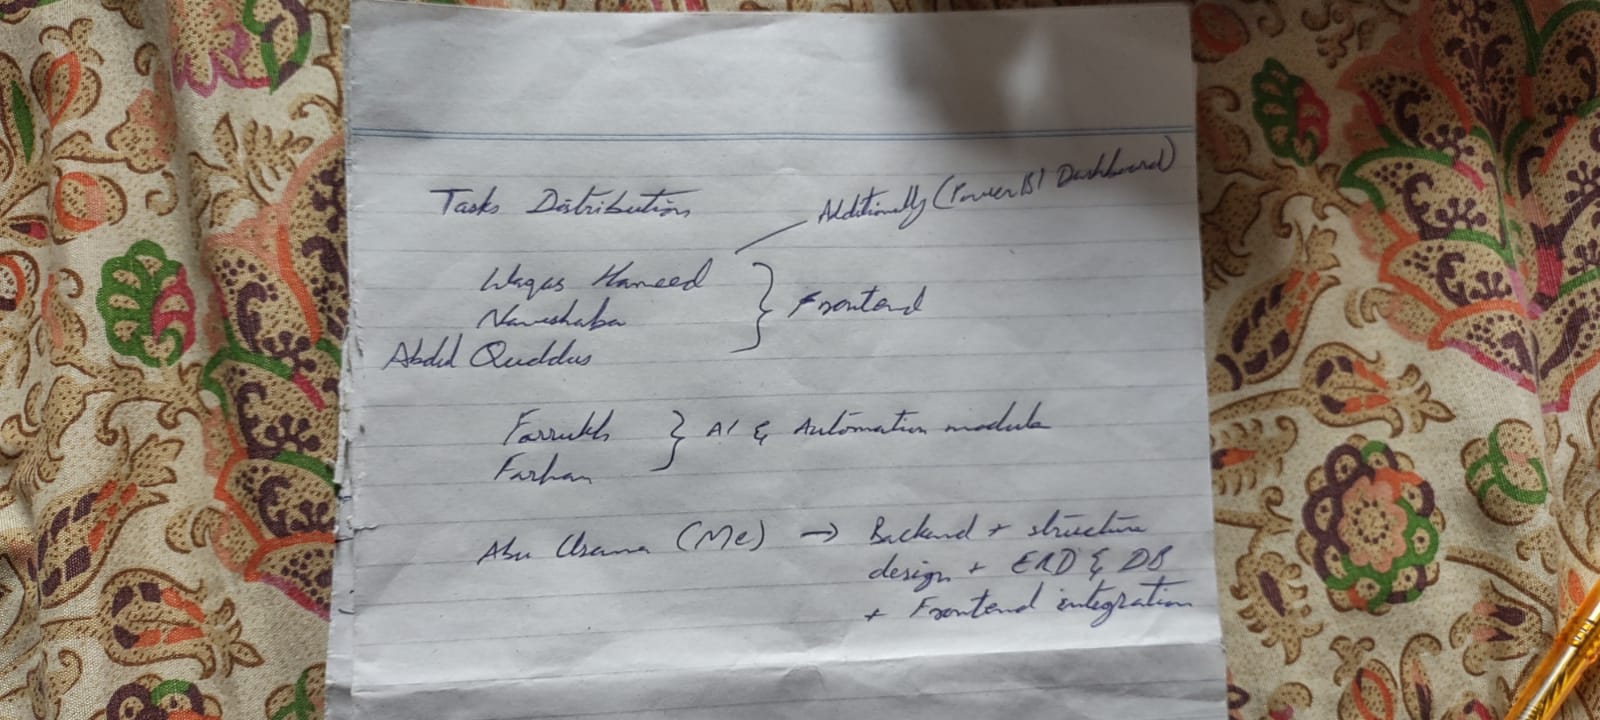 Tasks Distribution
Additionally (Power BI Dashboard)
Waqas Hameed
Nawshaba
Abdul Quddus
} Frontend
Farrukh
Farhan
} AI & Automation module
Abu Usama (Me) → Backend + structure
design + ERD & DB
+ Frontend integration